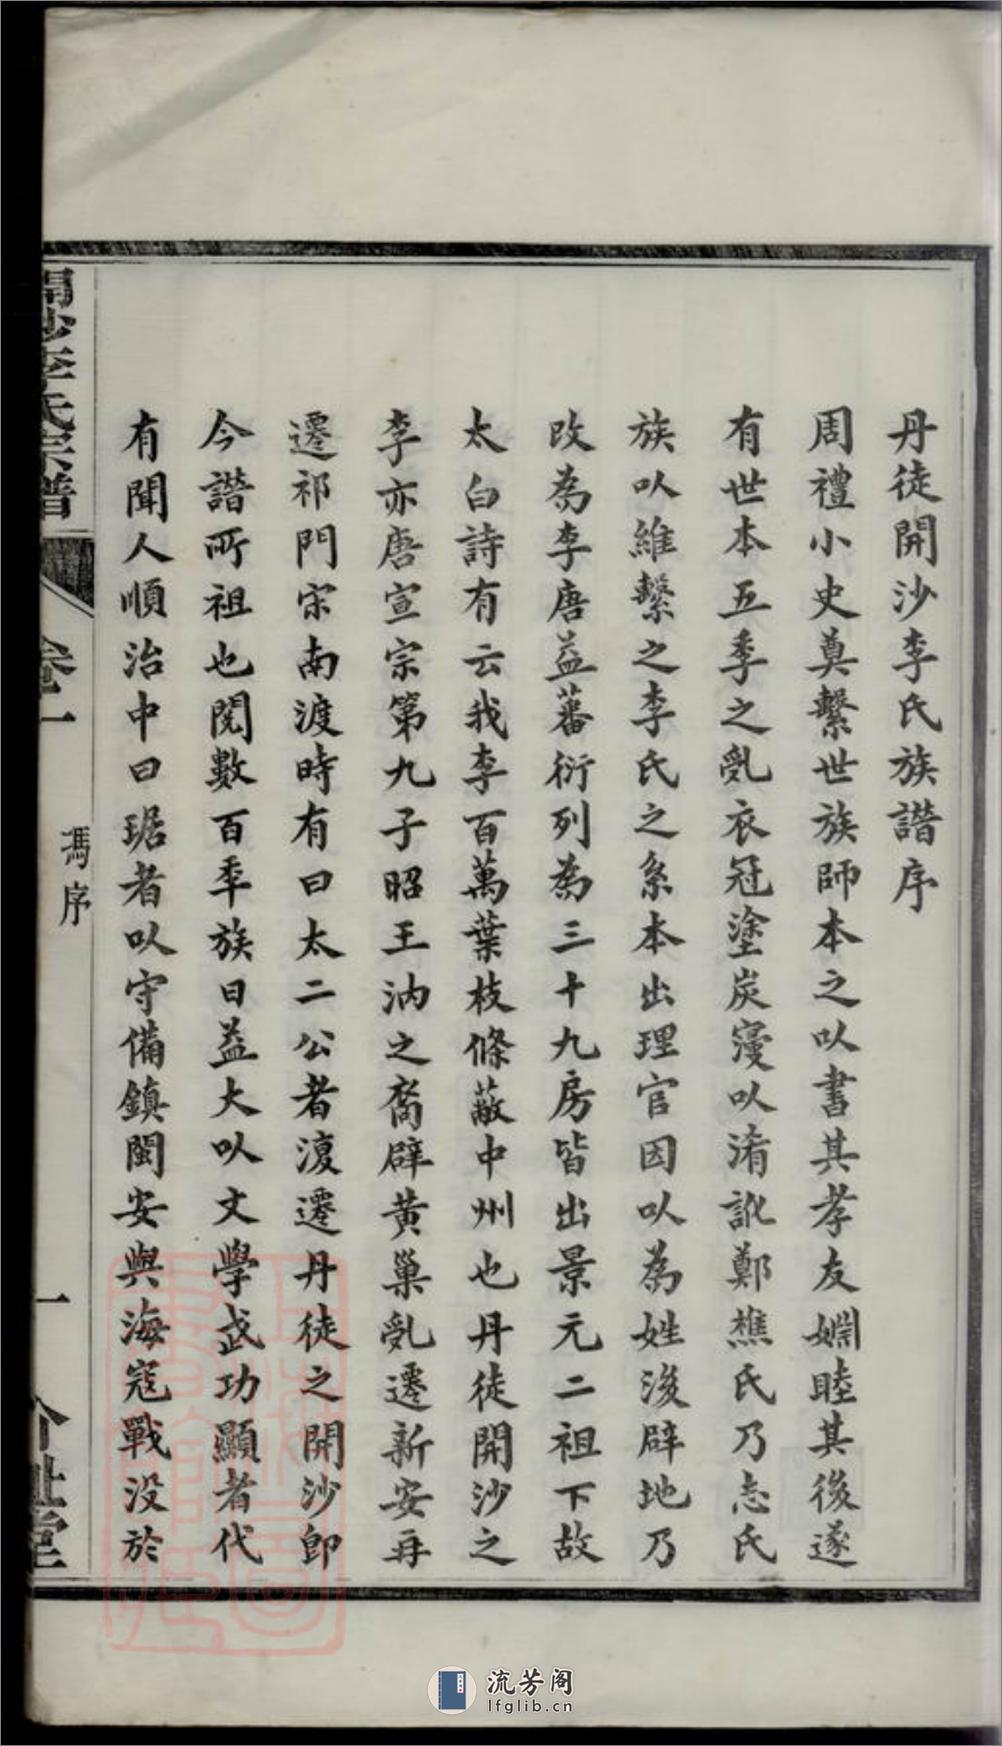 丹徒開沙李氏族譜序
周禮小史奠繫世族師本之以書其孝友婣睦其後遂
有世本五季之亂衣冠塗炭寖以淆訛鄭樵氏乃志氏
族以維繫之李氏之系本出理官因以為姓後辟地乃
改為李唐益蕃衍列為三十九房皆出景元二祖下故
太白詩有云我李百萬葉枝條蔽中州也丹徒開沙之
李亦唐宣宗第九子昭王汭之裔辟黃巢亂遷新安再
遷祁門宋南渡時有曰太二公者復遷丹徒之開沙即
今譜所祖也閱數百年族日益大以文學武功顯者代
有聞人順治中曰琚者以守備鎮閩安與海寇戰没於
開沙李氏宗譜
卷一
馮序
一
流芳阁
lfglib.cn